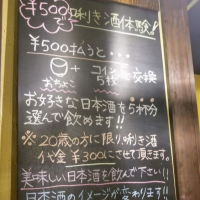 ¥500で
唎き酒体験!
¥500払うと…
おちょこ + コイン5枚 交換
お好きな日本酒を5杯分
選んで飲めます!!
※20歳の方に限り唎き酒
代金¥300にさせて頂きます。
美味しい日本酒を飲んで下さい!!
日本酒のイメージが変わります!!